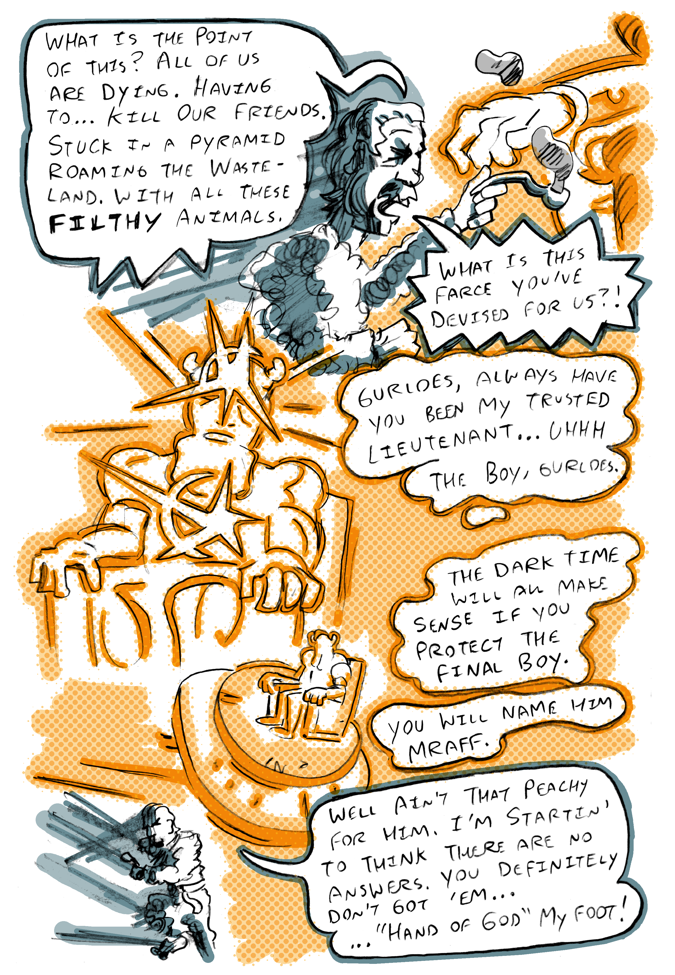 WHAT IS THE POINT
OF THIS? ALL OF US
ARE DYING. HAVING
TO... KILL OUR FRIENDS.
STUCK IN A PYRAMID
ROAMING THE WASTE-
LAND. WITH ALL THESE
FILTHY ANIMALS.
WHAT IS THIS
FARCE YOU'VE
DEVISED FOR US?!
GURLOES, ALWAYS HAVE
YOU BEEN MY TRUSTED
LIEUTENANT... UHHH
THE BOY, GURLOES.
THE DARK TIME
WILL ALL MAKE
SENSE IF YOU
PROTECT THE
FINAL BOY.
YOU WILL NAME HIM
MRAFF.
WELL AIN'T THAT PEACHY
FOR HIM. I'M STARTIN'
TO THINK THERE ARE NO
ANSWERS. YOU DEFINITELY
DON'T GOT 'EM...
..."HAND OF GOD" MY FOOT!